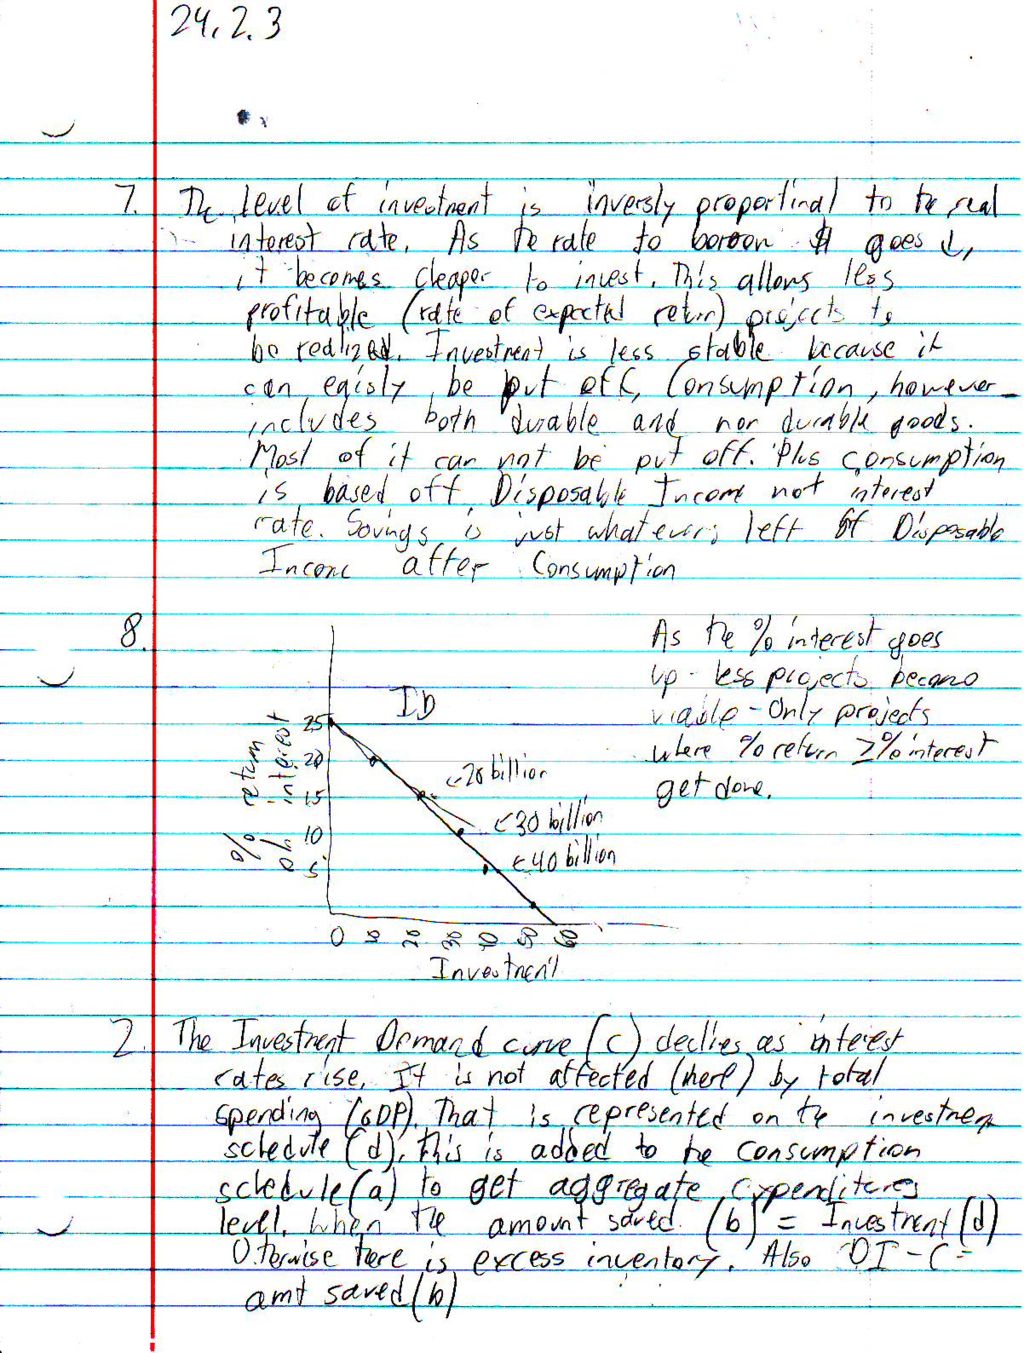 24.2.3
7. The level of investment is inversly proportinal to the real
interest rate. As the rate to borrow $ goes ↓,
it becomes cheaper to invest. This allows less
profitable (rate of expected return) projects to
be realized. Investment is less stable because it
can eaisly be put off. Consumption, however
includes both durable and non durable goods.
Most of it can not be put off. Plus consumption
is based off Disposable Income not interest
rate. Savings is just whatevers left of Disposable
Income after Consumption
8.
As the % interest goes
up - less projects become
viable - Only projects
where % return ≥ % interest
get done.
ID
% return
interest
25
20
15
10
5
<20 billion
<30 billion
<40 billion
0 10 20 30 40 50 60
Investment
2. The Investment Demand curve (c) declies as interest
rates rise. It is not affected (here) by total
spending (GDP). That is represented on the investment
schedule (d), this is added to the consumption
schedule (a) to get aggregate expenditures
level. When the amount saved (b) = Investment (d)
Otherwise there is excess inventory. Also DI - C =
amt saved (b)